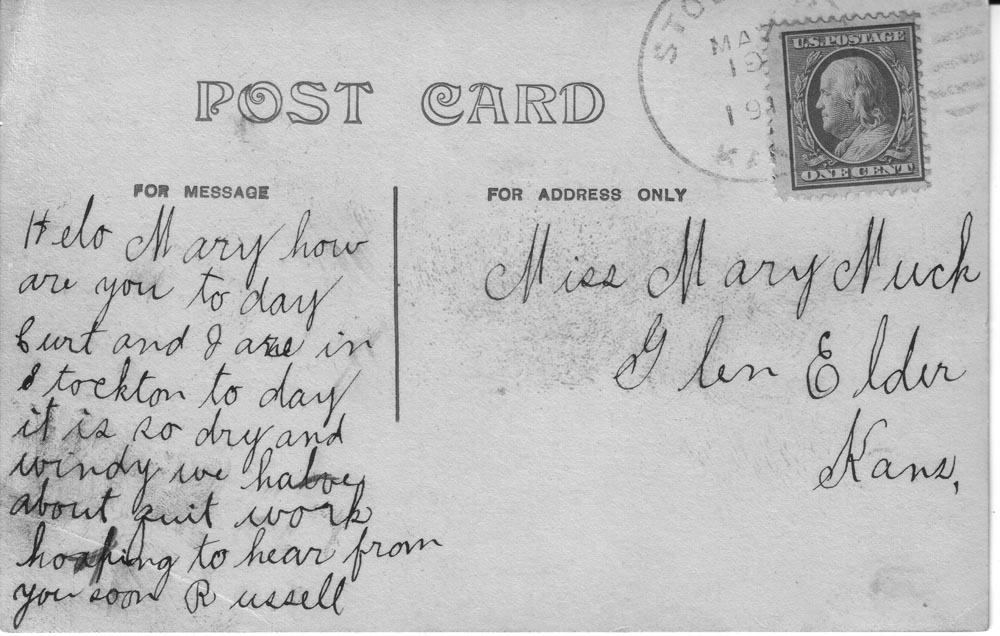 POST CARD
MAY
19
U.S. POSTAGE
ONE CENT
FOR MESSAGE
Helo Mary how
are you to day
Curt and I are in
Stockton to day
it is so dry and
windy we have
about quit work
hoaping to hear from
you soon Russell
FOR ADDRESS ONLY
Miss Mary Nuck
Glen Elder
Kans,